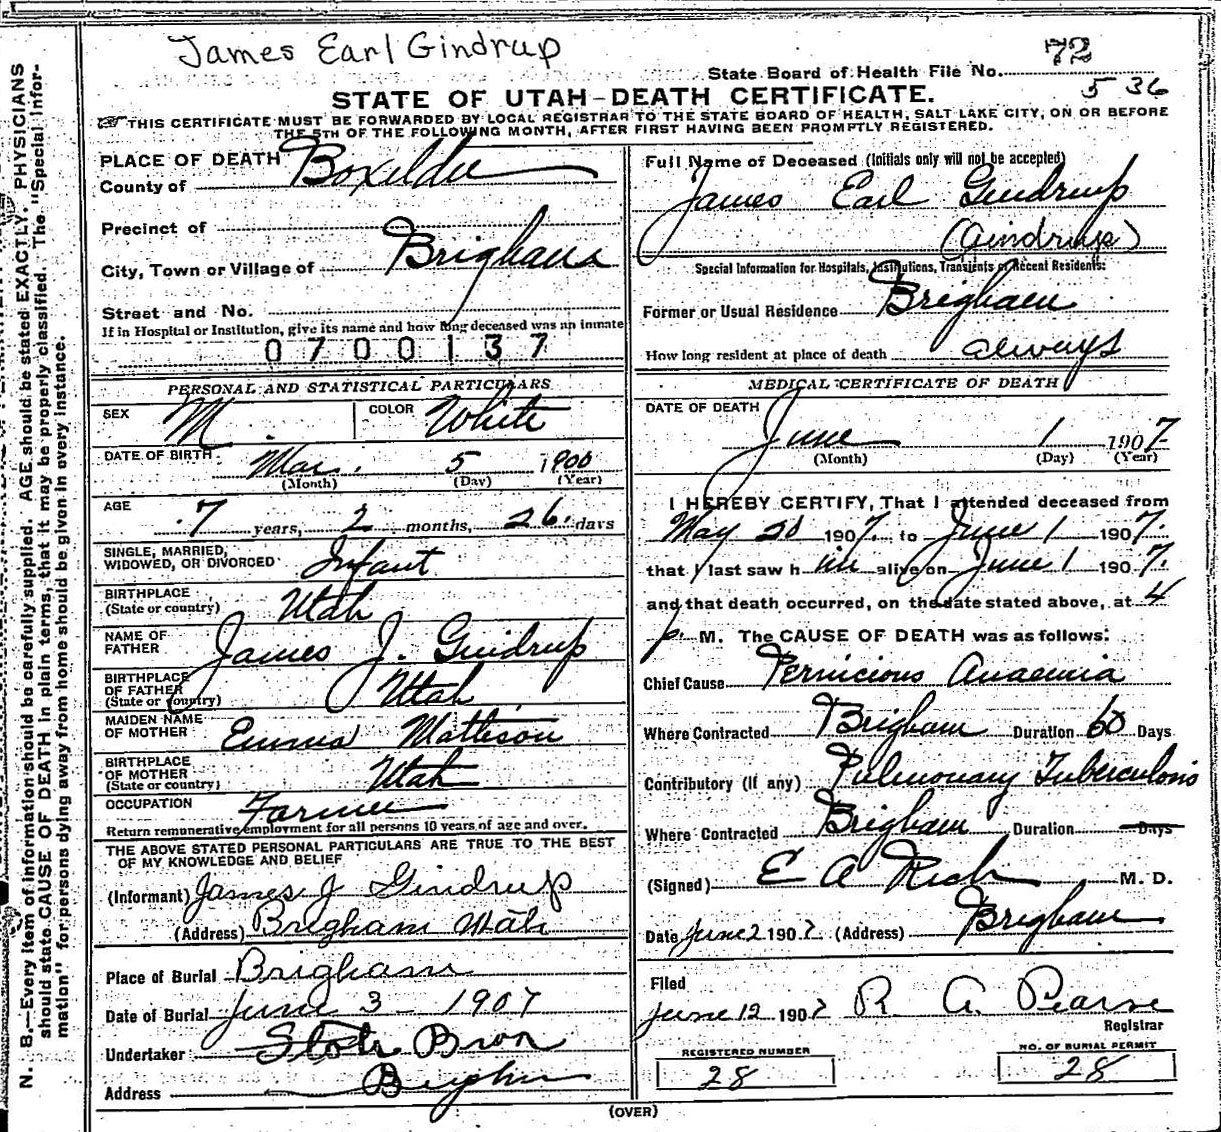 James Earl Gindrup
72
State Board of Health File No.
5 36
STATE OF UTAH-DEATH CERTIFICATE.
THIS CERTIFICATE MUST BE FORWARDED BY LOCAL REGISTRAR TO THE STATE BOARD OF HEALTH, SALT LAKE CITY, ON OR BEFORE
THE 5TH OF THE FOLLOWING MONTH, AFTER FIRST HAVING BEEN PROMPTLY REGISTERED.
N. B.—Every item of information should be carefully supplied. AGE should be stated EXACTLY. PHYSICIANS
should state CAUSE OF DEATH in plain terms, that it may be properly classified. The "Special Infor-
mation" for persons dying away from home should be given in every instance.
PLACE OF DEATH
County of Boxelder
Precinct of
City, Town or Village of Brigham
Street and No.
If in Hospital or Institution, give its name and how long deceased was an inmate
0 7 0 0 1 3 7
PERSONAL AND STATISTICAL PARTICULARS
SEX M. COLOR White
DATE OF BIRTH Mar. 5 1900
(Month) (Day) (Year)
AGE 7 years, 2 months, 26 days
SINGLE, MARRIED,
WIDOWED, OR DIVORCED Infant
BIRTHPLACE
(State or country) Utah
NAME OF
FATHER James J. Gindrup
BIRTHPLACE
OF FATHER
(State or country) Utah
MAIDEN NAME
OF MOTHER Emma Mattison
BIRTHPLACE
OF MOTHER
(State or country) Utah
OCCUPATION Farmer
Return remunerative employment for all persons 10 years of age and over.
THE ABOVE STATED PERSONAL PARTICULARS ARE TRUE TO THE BEST
OF MY KNOWLEDGE AND BELIEF
(Informant) James J Gindrup
(Address) Brigham Utah
Place of Burial Brigham
Date of Burial June 3 1907
Undertaker
Address Brigham
Full Name of Deceased (Initials only will not be accepted)
James Earl Gindrup
(Gindrup)
Special Information for Hospitals, Institutions, Transients or Recent Residents:
Former or Usual Residence Brigham
How long resident at place of death always
MEDICAL CERTIFICATE OF DEATH
DATE OF DEATH
June 1 1907.
(Month) (Day) (Year)
I HEREBY CERTIFY, That I attended deceased from
May 20 1907. to June 1 1907.
that I last saw him alive on June 1 1907.
and that death occurred, on the date stated above, at 4
p M. The CAUSE OF DEATH was as follows:
Chief Cause Pernicious Anaemia
Where Contracted Brigham Duration 60 Days
Contributory (If any) Pulmonary Tuberculosis
Where Contracted Brigham Duration Days
(Signed) E A Rich M. D.
Date June 2 1907 (Address) Brigham
Filed
June 12 1907 R. A. Pearse
Registrar
REGISTERED NUMBER
28
NO. OF BURIAL PERMIT
28
(OVER)